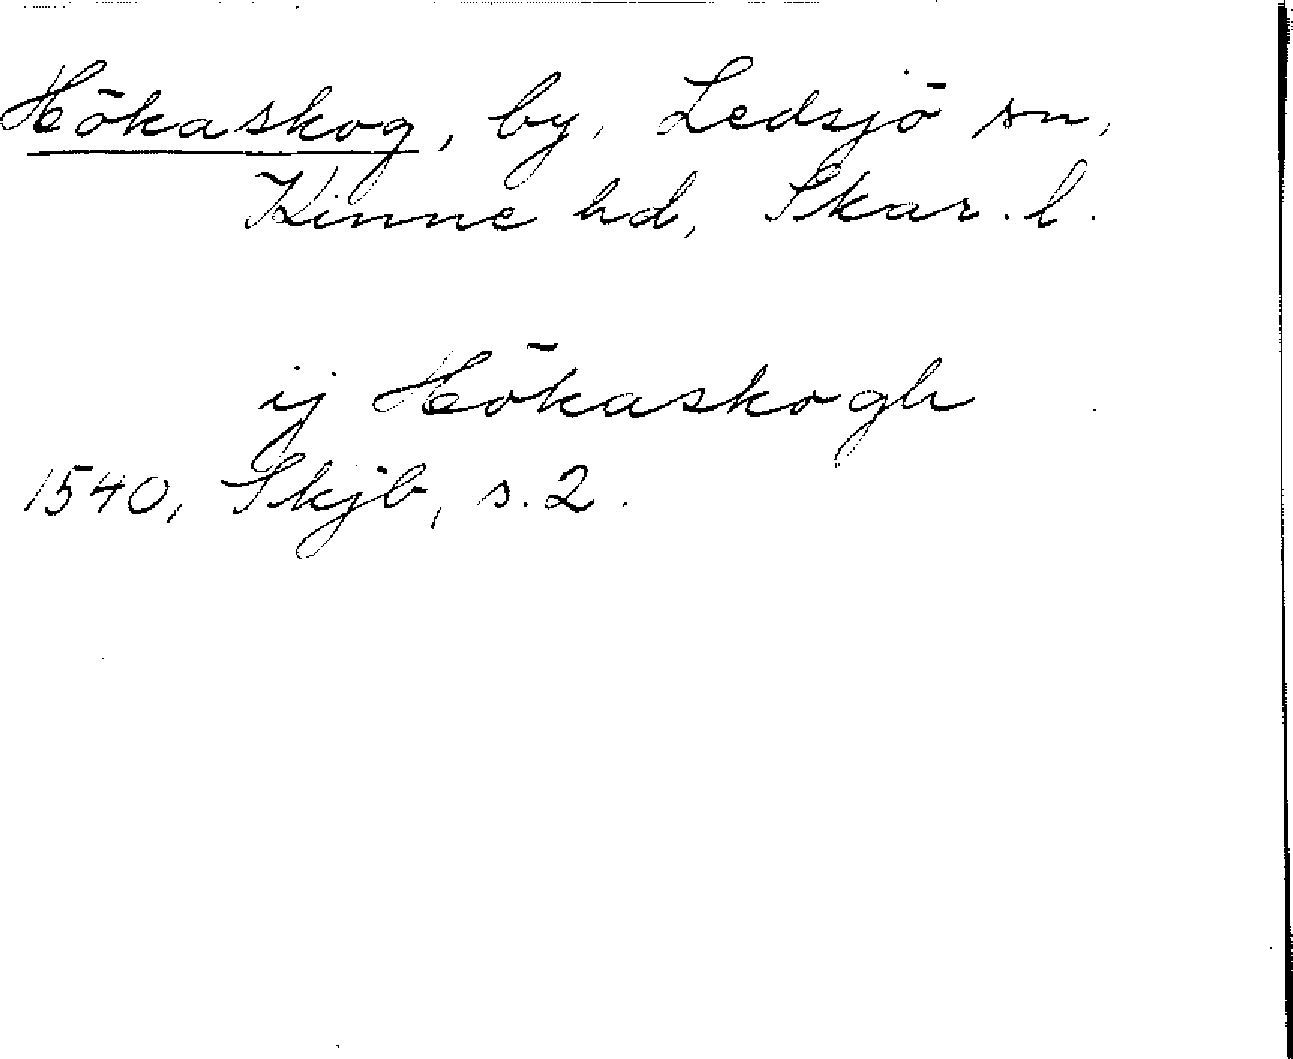 Hökaskog, by, Ledsjö sn,
Kinne hd, Skar. l.
ij Hökaskogh
1540, Skjb, s. 2.